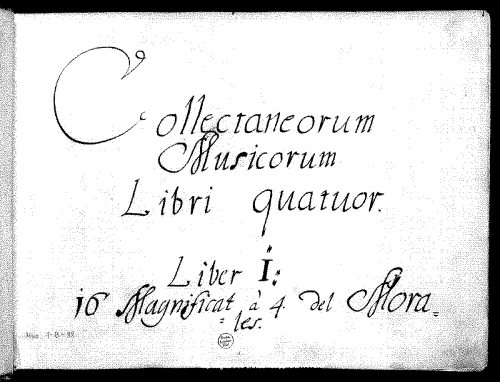 Collectaneorum
Musicorum
Libri quatuor.
Liber I:
16 Magnificat à 4 del Mora=
=les.